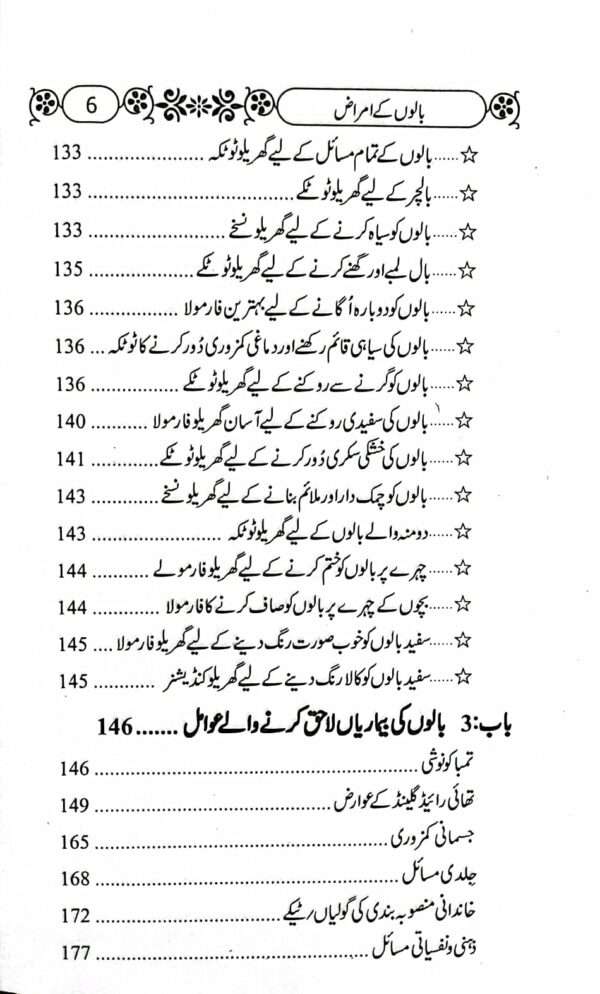 بالوں کے امراض 6
☆......بالوں کے تمام مسائل کے لیے گھریلو ٹوٹکہ .................... 133
☆......بالچر کے لیے گھریلو ٹوٹکے.................................... 133
☆......بالوں کو سیاہ کرنے کے لیے گھریلو نسخے ........................ 133
☆......بال لمبے اور گھنے کرنے کے لیے گھریلو ٹوٹکے .................. 135
☆......بالوں کو دوبارہ اُگانے کے لیے بہترین فارمولا ................ 136
☆......بالوں کی سیاہی قائم رکھنے اور دماغی کمزوری دُور کرنے کا ٹوٹکہ ... 136
☆......بالوں کو گرنے سے روکنے کے لیے گھریلو ٹوٹکے ................ 136
☆......بالوں کی سفیدی روکنے کے لیے آسان گھریلو فارمولا .......... 140
☆......بالوں کی خشکی سکری دُور کرنے کے لیے گھریلو ٹوٹکے................. 141
☆......بالوں کو چمک دار اور ملائم بنانے کے لیے گھریلو نسخے ............. 143
☆......دو منہ والے بالوں کے لیے گھریلو ٹوٹکہ ....................... 143
☆......چہرے پر بالوں کو ختم کرنے کے لیے گھریلو فارمولے ........... 144
☆......بچوں کے چہرے پر بالوں کو صاف کرنے کا فارمولا ............ 144
☆......سفید بالوں کو خوب صورت رنگ دینے کے لیے گھریلو فارمولا .... 145
☆......سفید بالوں کو کالا رنگ دینے کے لیے گھریلو کنڈیشنر ............ 145
باب:3 بالوں کی بیماریاں لاحق کرنے والے عوامل ....... 146
تمباکونوشی .......................................................... 146
تھائی رائیڈ گلینڈ کے عوارض............................................ 149
جسمانی کمزوری ..................................................... 165
جلدی مسائل ....................................................... 168
خاندانی منصوبہ بندی کی گولیاں رٹیکے................................. 172
ذہنی و نفسیاتی مسائل ................................................ 177